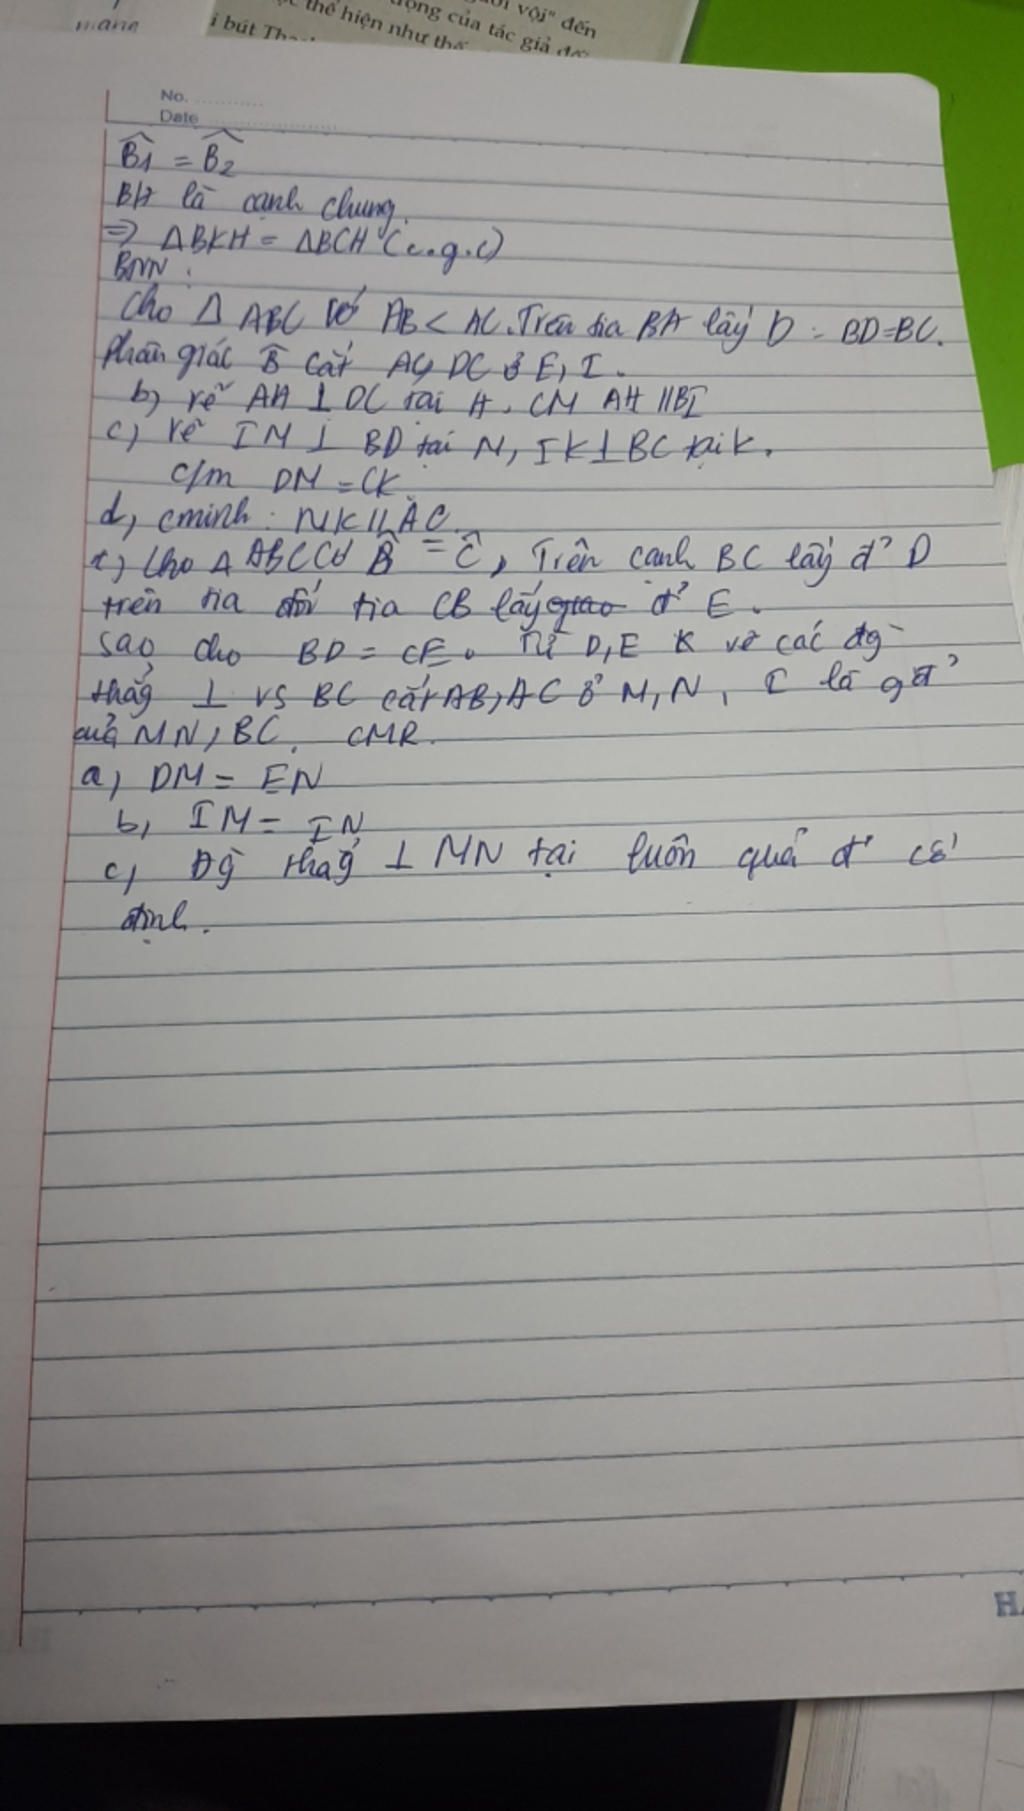 mane
vội" đến
thể hiện như thế
động của tác giả đối
i bút Th
No.
Date
B1 = B2
BH là cạnh chung.
=> ΔBKH = ΔBCH (c.g.c)
BNN :
Cho Δ ABC có AB < AC. Trên tia BA lấy D : BD=BC.
Phân giác B cắt AC, DC ở E, I.
b, vẽ AH ⊥ DC tại H. CM AH // BI
c, vẽ IM ⊥ BD tại N, IK ⊥ BC tại K.
c/m DN = CK
d, cminh : NK // AC
Cho Δ ABC có B = C, Trên cạnh BC lấy đ' D
trên tia đối tia CB lấy đ' E.
sao cho BD = CE. Từ D, E K vẽ các đg
thẳg ⊥ vs BC cắt AB, AC ở M, N, I là gđ'
của MN, BC. CMR.
a, DM = EN
b, IM = IN
c, Đg thẳg ⊥ MN tại luôn quá đ' cố
định.
H